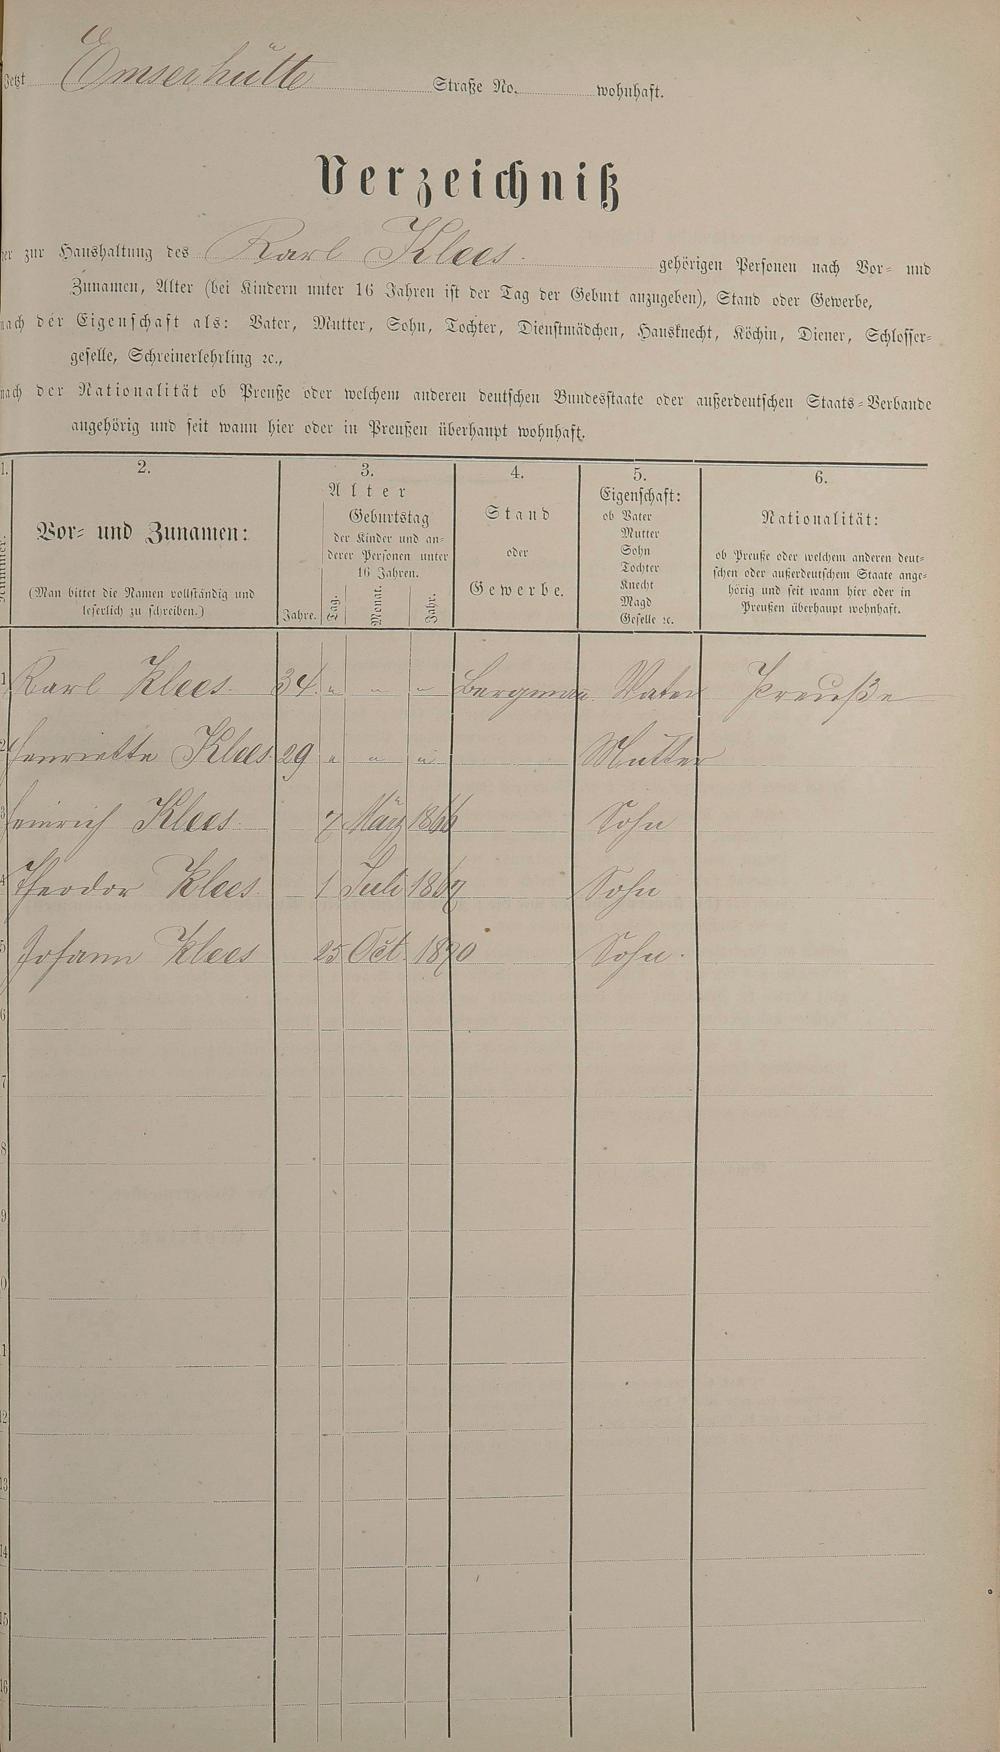 Jetzt Emserhütte Straße No. wohnhaft.
Verzeichniß
der zur Haushaltung des Karl Klees. gehörigen Personen nach Vor- und
Zunamen, Alter (bei Kindern unter 16 Jahren ist der Tag der Geburt anzugeben), Stand oder Gewerbe,
nach der Eigenschaft als: Vater, Mutter, Sohn, Tochter, Dienstmädchen, Hausknecht, Köchin, Diener, Schlosser-
geselle, Schreinerlehrling ꝛc.,
nach der Nationalität ob Preuße oder welchem anderen deutschen Bundesstaate oder außerdeutschen Staats-Verbande
angehörig und seit wann hier oder in Preußen überhaupt wohnhaft.
1. 2. 3. 4. 5. 6.
Nummer.
Vor- und Zunamen:
(Man bittet die Namen vollständig und
leserlich zu schreiben.)
Alter
Jahre.
Geburtstag
der Kinder und an-
derer Personen unter
16 Jahren.
Tag. Monat. Jahr.
Stand
oder
Gewerbe.
Eigenschaft:
ob Vater
Mutter
Sohn
Tochter
Knecht
Magd
Geselle ꝛc.
Nationalität:
ob Preuße oder welchem anderen deut-
schen oder außerdeutschem Staate ange-
hörig und seit wann hier oder in
Preußen überhaupt wohnhaft.
1 Karl Klees. 34. " " " Bergman. Vater Preuße
2 Henriette Klees. 29 " " " Mutter
3 Heinrich Klees. 7 März 1866 Sohn
4 Theodor Klees. 1 Juli 1867 Sohn
5 Johann Klees 25 Oct. 1870 Sohn.
6
7
8
9
0
1
12
13
14
15
16